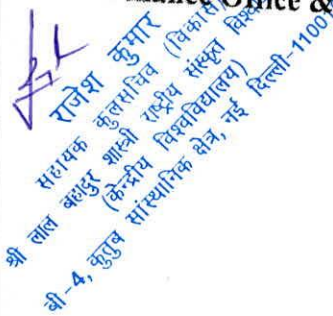 Office &
राजेश कुमार
सहायक कुलसचिव (विकास
श्री लाल बहादुर शास्त्री राष्ट्रीय संस्कृत
(केन्द्रीय विश्वविद्यालय)
बी-4, कुतुब सांस्थानिक क्षेत्र, नई दिल्ली-1100